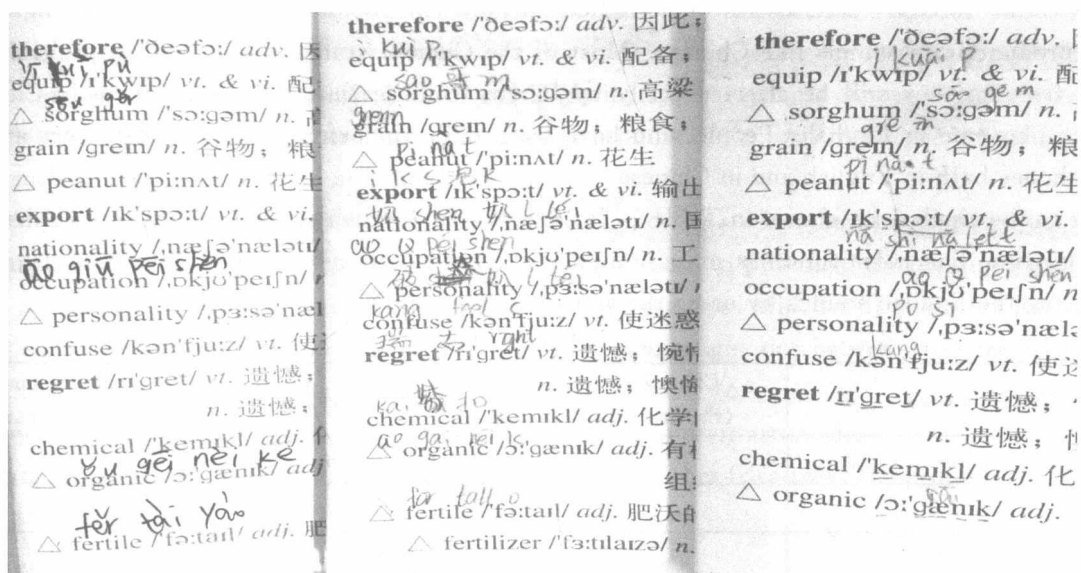 therefore /'ðeəfɔ:/ adv. 因
yī kuì pǔ
equip /ɪ'kwɪp/ vt. & vi. 配
△ sorghum /'sɔ:gəm/ n. 高
grain /greɪn/ n. 谷物；粮
△ peanut /'pi:nʌt/ n. 花生
export /ɪk'spɔ:t/ vt. & vi.
nationality /,næʃə'nælətɪ/
āo giū pēi shēn
occupation /,ɒkjʊ'peɪʃn/ n
△ personality /,pɜ:sə'næl
confuse /kən'fju:z/ vt. 使
regret /rɪ'gret/ vt. 遗憾；
n. 遗憾；
chemical /'kemɪkl/ adj. 化
gēi nèi kē
△ organic /ɔ:'gænɪk/ adj
fěr tài yào
△ fertile /'fɜ:taɪl/ adj. 肥
therefore /'ðeəfɔ:/ adv. 因此；
i kui p
equip /ɪ'kwɪp/ vt. & vi. 配备；
sao 哥 m
△ sorghum /'sɔ:gəm/ n. 高粱
grain /greɪn/ n. 谷物；粮食；
pi na t
△ peanut /'pi:nʌt/ n. 花生
export /ɪk'spɔ:t/ vt. & vi. 输出
nationality /,næʃə'nælətɪ/ n. 国
ao Q pēi shen
occupation /,ɒkjʊ'peɪʃn/ n. 工
△ personality /,pɜ:sə'nælətɪ/ n
kang
confuse /kən'fju:z/ vt. 使迷惑
regret /rɪ'gret/ vt. 遗憾；惋惜
n. 遗憾；懊悔
chemical /'kemɪkl/ adj. 化学的
ao gai nei k
△ organic /ɔ:'gænɪk/ adj. 有机
组织
△ fertile /'fɜ:taɪl/ adj. 肥沃的
△ fertilizer /'fɜ:tɪlaɪzə/ n.
therefore /'ðeəfɔ:/ adv.
i kuāi p
equip /ɪ'kwɪp/ vt. & vi. 配
sāo gē m
△ sorghum /'sɔ:gəm/ n.
grē in
grain /greɪn/ n. 谷物；粮
pī nā t
△ peanut /'pi:nʌt/ n. 花生
export /ɪk'spɔ:t/ vt. & vi.
nationality /,næʃə'nælətɪ/
ao Q pēi shēn
occupation /,ɒkjʊ'peɪʃn/ n
po si
△ personality /,pɜ:sə'nælə
kang
confuse /kən'fju:z/ vt. 使迷
regret /rɪ'gret/ vt. 遗憾；
n. 遗憾；
chemical /'kemɪkl/ adj. 化
△ organic /ɔ:'gænɪk/ adj.